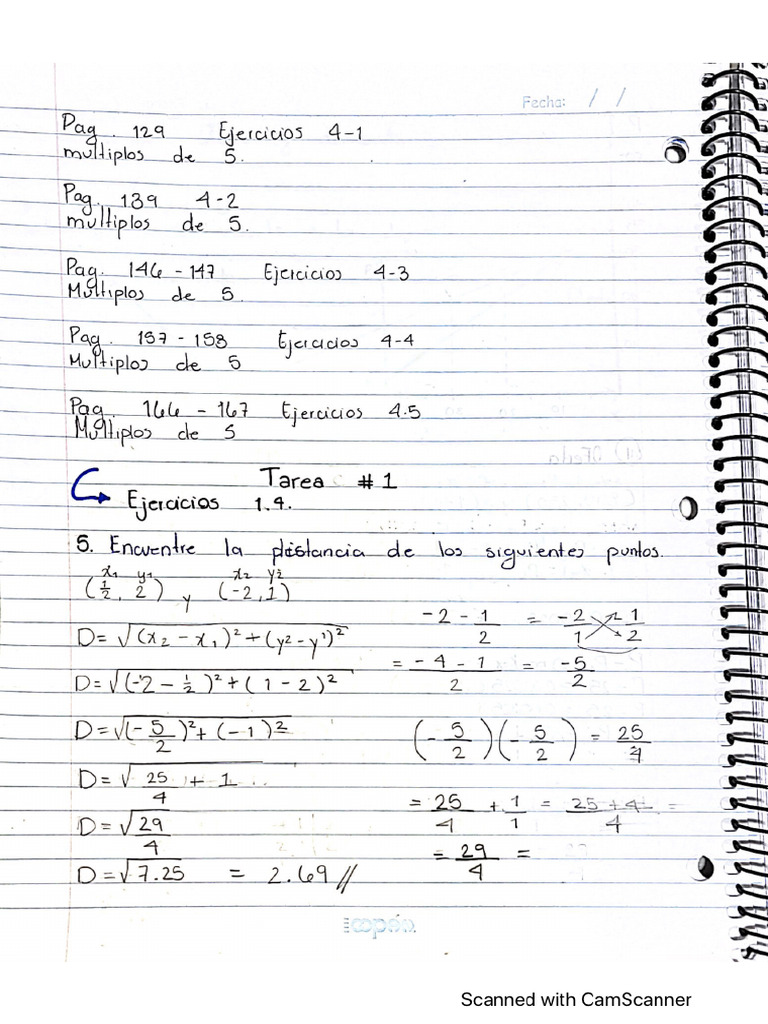 Fecha: / /
Pag. 129 Ejercicios 4-1
multiplos de 5.
Pag. 139 4-2
multiplos de 5.
Pag. 146 - 147 Ejercicios 4-3
Multiplos de 5.
Pag. 157 - 158 Ejercicios 4-4
Multiplos de 5
Pag. 166 - 167 Ejercicios 4.5
Multiplos de 5
Tarea # 1
Ejercicios 1.4.
5. Encuentre la distancia de los siguientes puntos.
x₁ y₁ x₂ y₂
(1/2, 2) y (-2, 1)
-2 - 1/2 = -2/1 - 1/2
D = √(x₂ - x₁)² + (y² - y¹)²
= -4 - 1/2 = -5/2
D = √(-2 - 1/2)² + (1 - 2)²
D = √(-5/2)² + (-1)²
(-5/2)(-5/2) = 25/4
D = √25/4 + 1
= 25/4 + 1/1 = 25 + 4/4 =
D = √29/4
= 29/4 =
D = √7.25 = 2.69 //
copán
Scanned with CamScanner